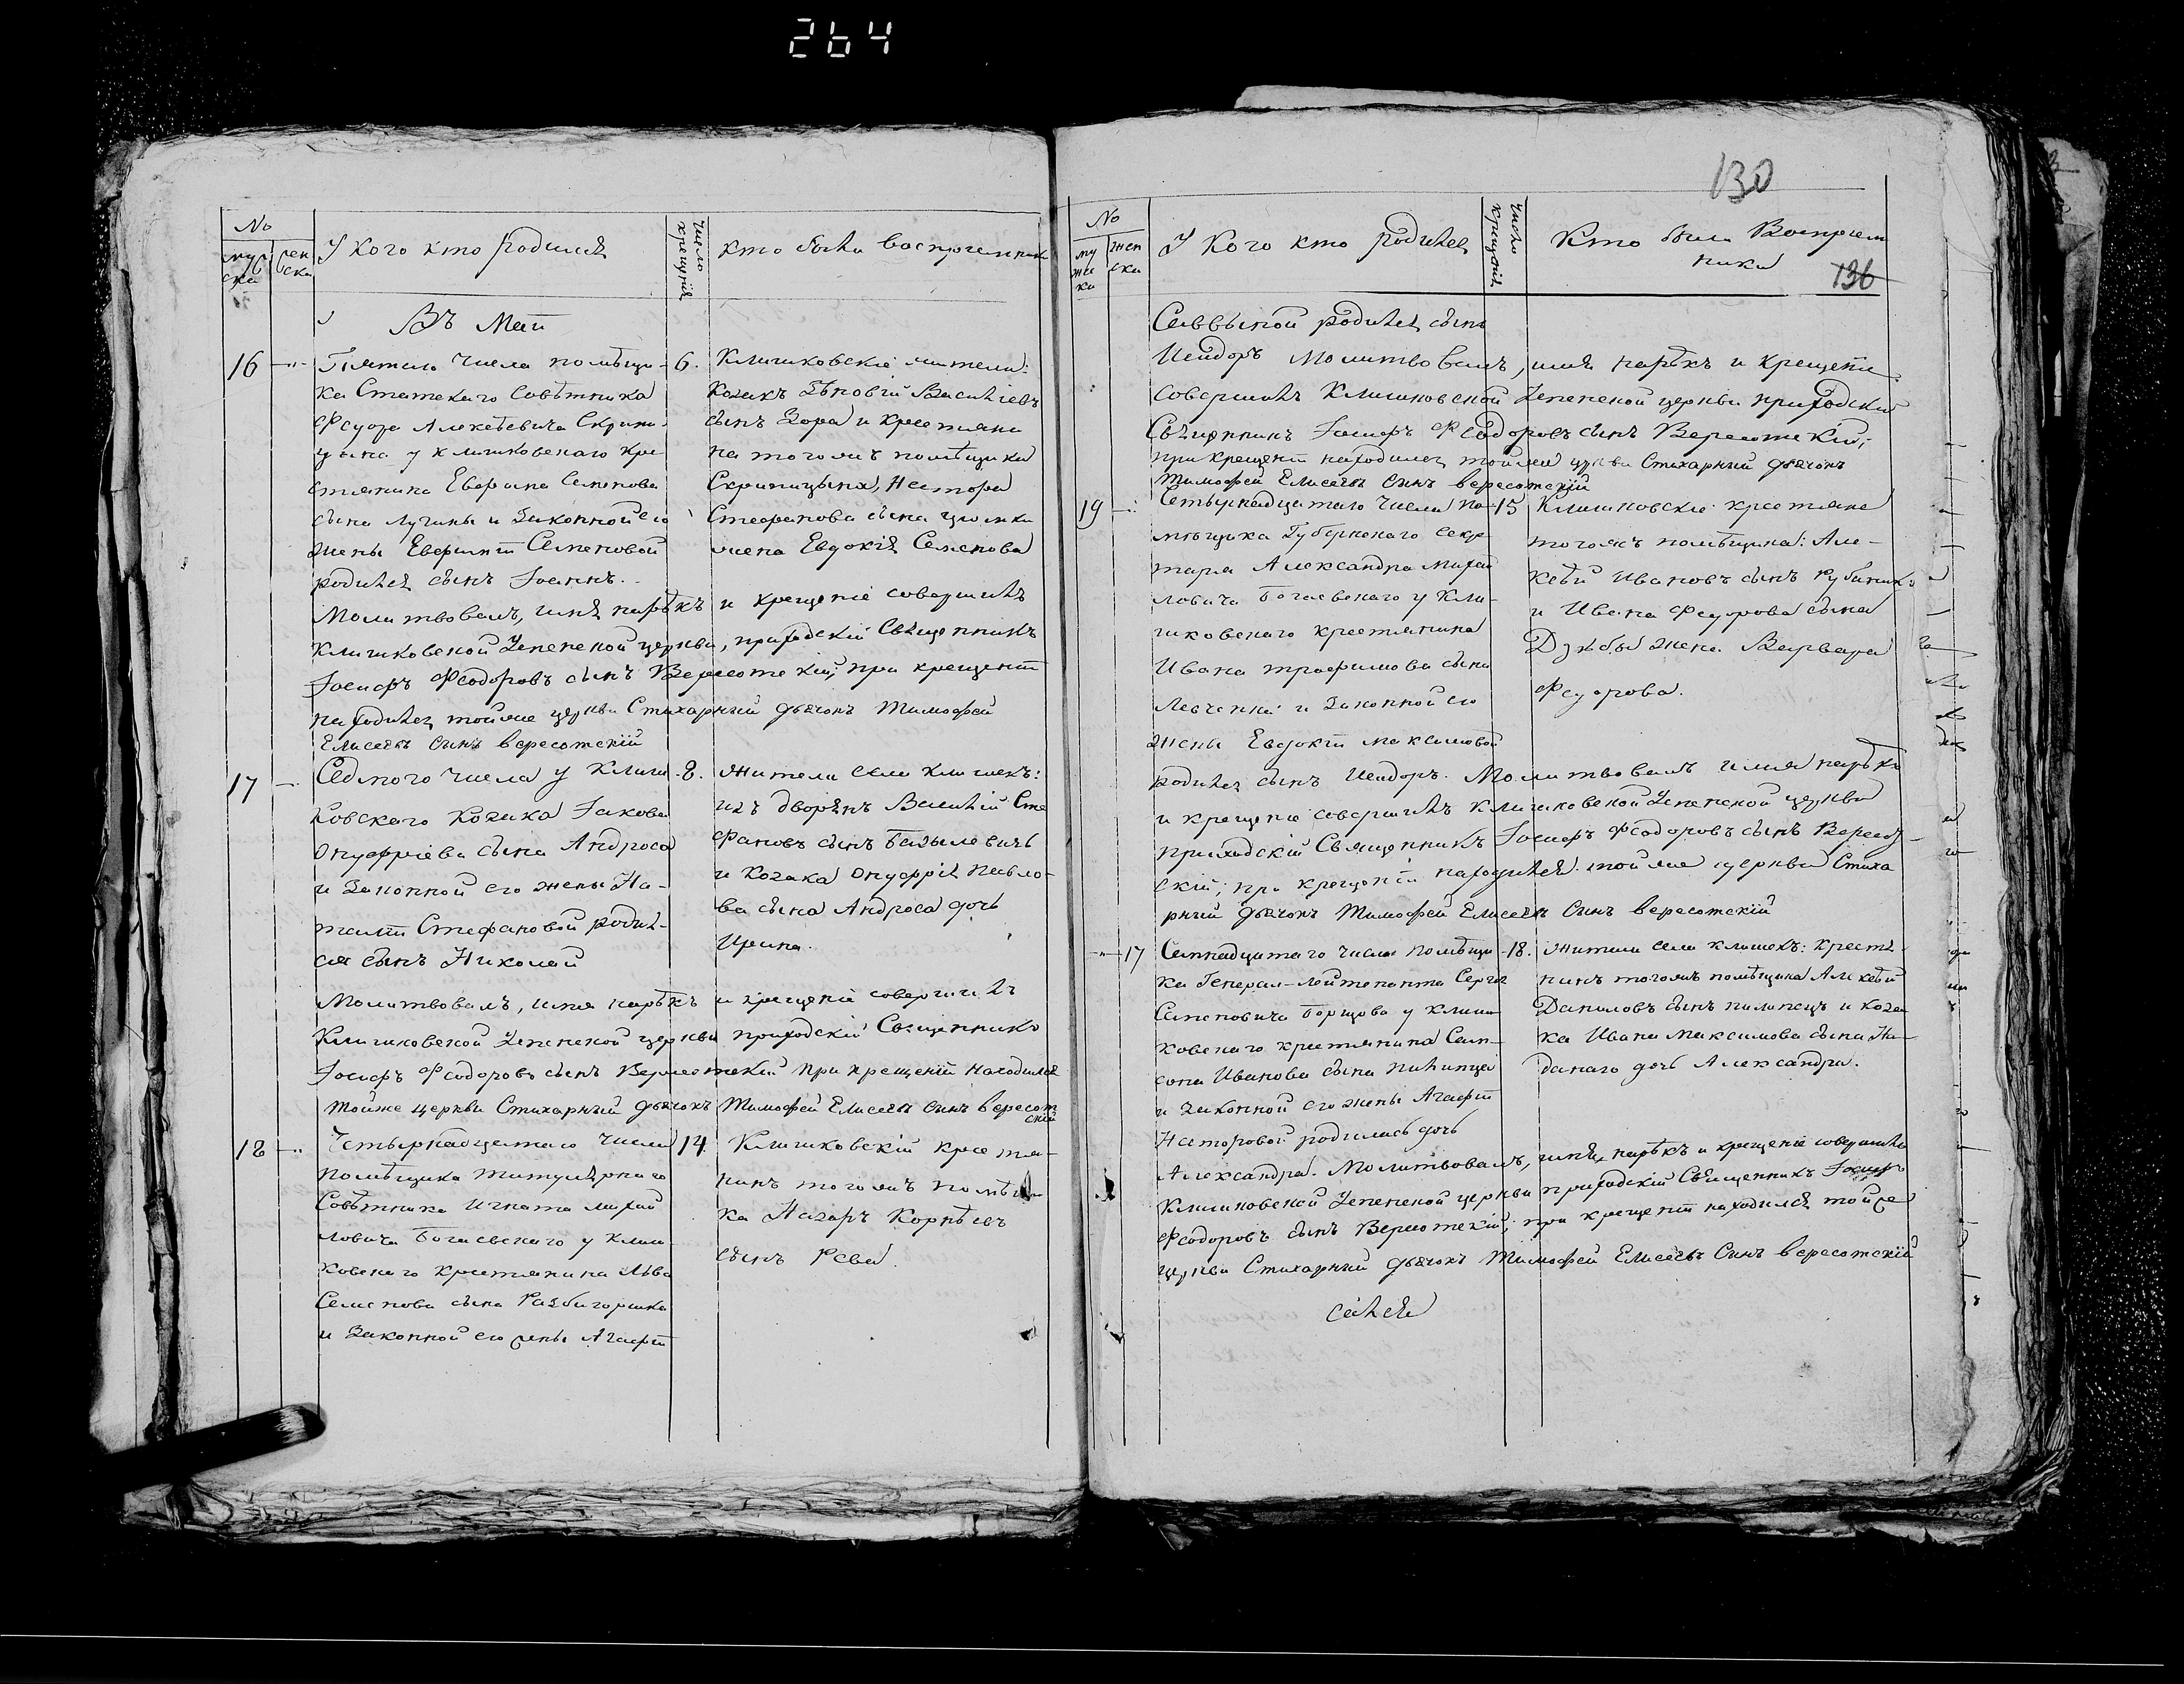 264
130
No
муж
ска
жен
ска
У кого кто родился
число
крещенія
кто были воспріемники
Въ Маи
16
Пятаго числа помѣщи-
ка Статскаго Совѣтника
Федора Алексѣевича Скрипи-
цына у клишковскаго кре-
стянина Еврема Семенова
сына Лугины и Законной его
жены Евфиміи Семеновой
родился сынъ Іоаннъ.
6.
Клишковскіе жители:
Козакъ Зѣновій Васильевъ
сынъ Зора и крестянина
тогожъ помѣщика
Скрипицына, Нестора
Стефанова сына
жена Евдокія Семенова
Молитвовалъ, имя нарѣкъ и крещеніе совершилъ
Клишковской Успенской церкви, приходскій Священникъ
Іосифъ Феодоровъ сынъ Вересотскій, при крещеніи
находился тойже церкви Стихарный дьячокъ Тимофей
Елисеевъ сынъ вересотскій
17
Седмого числа у клиш-
ковского козака Іакова
Онуфріева сына Андроса
и Законной его жены На-
таліи Стефановой родил-
ся сынъ Николай
8.
жители села клишекъ:
изъ дворянъ Василій Сте
фановъ сынъ Базылевичъ
и козака Онуфрія Павло-
ва сына Андроса дочь
Ирина.
Молитвовалъ, имя нарѣкъ и крещеніе совершилъ
Клишковской Успенской церкви приходскій Священникъ
Іосифъ Феодоровъ сынъ Вересотскій при крещеніи находился
тойже церкви Стихарный дьячокъ Тимофей Елисеевъ сынъ вересот
скій
18
Четырнадцатаго числа
помѣщика титулярнаго
Совѣтника Игната Михай
ловича Богаевскаго у клиш-
ковского крестянина Льва
Семенова сына Разбигоршка
и Законной его жены Агафіи
14
Клишковскій кресть-
нинъ тогожъ помѣщи
ка Назаръ Корнѣевъ
сынъ Рева.
No
му
жс
ка
жен
ска
У Кого кто родился
число
крещенія
Кто были Воспріем
ники
136
Саввиной родился сынъ
Исидоръ Молитвовалъ, имя нарѣкъ и крещеніе
совершилъ Клишковской Успенской церкви приходскій
Священникъ Іосифъ Феодоровъ сынъ Вересотскій,
при крещеніи находился тойже церкви Стихарный дьячокъ
Тимофей Елисеевъ сынъ вересотскій
19
Четырнадцатаго числа по-
мѣщика Губернскаго Секре-
таря Александра Михай
ловича Богаевскаго у кли-
шковскаго крестянина
Ивана Трофимова сына
Левченка и Законной его
жены Евдокіи Максимовой
15
Клишковскіе крестяне
тогожъ помѣщика: Але-
ксѣй Ивановъ сынъ
и Ивана Федорова сына
Дзюбы жена Варвара
Федорова.
родился сынъ Исидоръ. Молитвовалъ имя нарѣкъ
и крещеніе совершилъ клишковской Успенской церкви
приходскій Священникъ Іосифъ Феодоровъ сынъ Вересот
скій; при крещеніи находился тойже церкви Стиха
рный дьячокъ Тимофей Елисеевъ сынъ вересотскій
17
Семнадцатаго числа помѣщи-
ка Генерал-Лейтенанта Сергея
Семеновича Борщова у клиш-
ковскаго крестянина Сам-
сона Иванова сына Пилипца
и Законной его жены Агафіи
Несторовой родилась дочь
18.
жители села клишекъ: крестя-
нинъ тогожъ помѣщика Алексѣй
Даниловъ сынъ пилипецъ и коза
ка Ивана Максимова сына На-
данаго дочь Александра.
Александра. Молитвовалъ, имя нарѣкъ и крещеніе совершилъ
Клишковской Успенской церкви приходскій Священникъ Іосифъ
Феодоровъ сынъ Вересотскій, при крещеніи находился тойже
церкви Стихарный дьячокъ Тимофей Елисеевъ Сынъ вересотскій